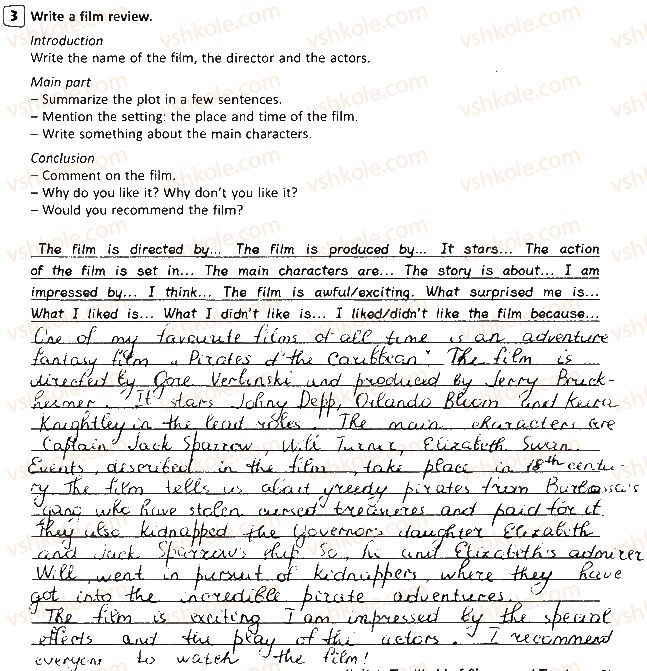 3 Write a film review.
Introduction
Write the name of the film, the director and the actors.
Main part
– Summarize the plot in a few sentences.
– Mention the setting: the place and time of the film.
– Write something about the main characters.
Conclusion
– Comment on the film.
– Why do you like it? Why don't you like it?
– Would you recommend the film?
The film is directed by... The film is produced by... It stars... The action
of the film is set in... The main characters are... The story is about... I am
impressed by... I think... The film is awful/exciting. What surprised me is...
What I liked is... What I didn't like is... I liked/didn't like the film because...
One of my favourite films of all time is an adventure
fantasy film „Pirates of the Caribbean". The film is
directed by Gore Verbinski and produced by Jerry Bruck-
heimer. It stars Johny Depp, Orlando Bloom and Keira
Knightley in the lead roles. The main characters are
Captain Jack Sparrow, Will Turner, Elizabeth Swan.
Events, described in the film, take place in 18th centu-
ry. The film tells us about greedy pirates from Barbossa's
gang who have stolen cursed treasures and paid for it.
They also kidnapped the Governor's daughter Elizabeth
and Jack Sparrow's ship. So, he and Elizabeth's admirer
Will, went in pursuit of kidnappers, where they have
got into the incredible pirate adventures.
The film is exciting. I am impressed by the special
effects and the play of the actors. I recommend
everyone to watch the film!
vshkole.com